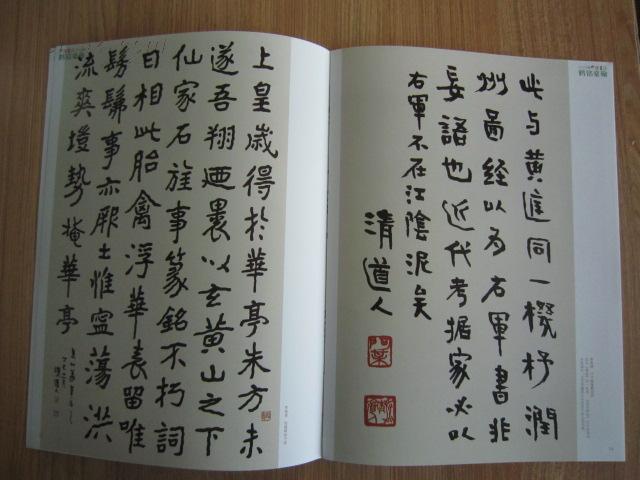 上皇歲得於華亭朱方未
遂吾翔迺裹以玄黄山之下
仙家石旌事篆銘不朽詞
曰相此胎禽浮華表留唯
髣髴事亦厥土惟寧蕩洪
流爽塏勢掩華亭
此与黄庭同一機杼潤
州圖經以为右軍書非
妄語也近代考据家必以
右軍不在江陰泥矣
清道人